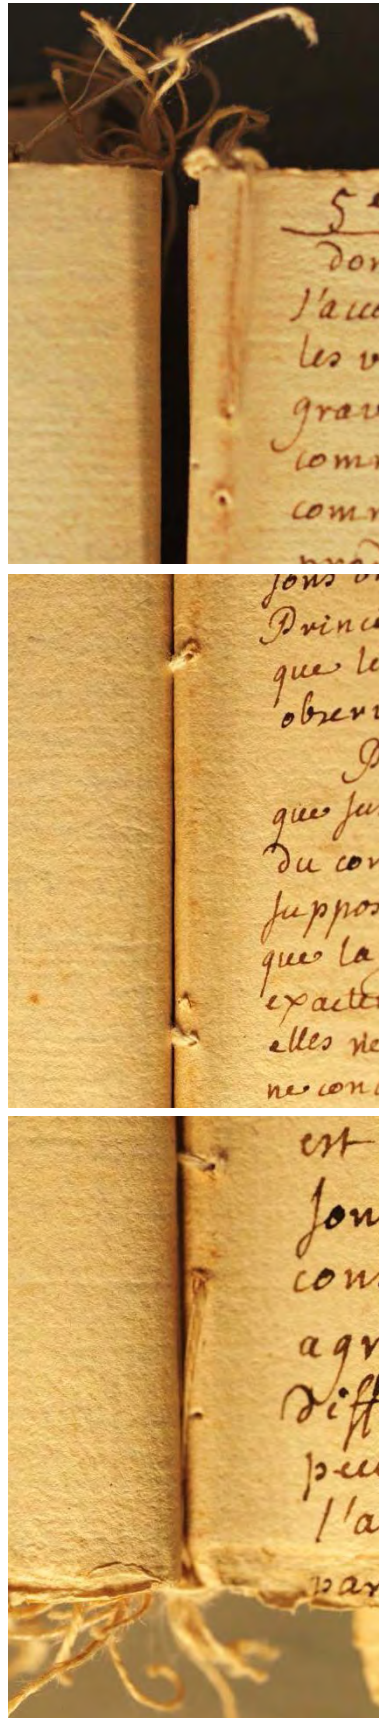 5e
don
l'acco
les v
grav
comm
comm
prod
sons o
Princ
que le
observ
P
que su
du con
suppos
que la
exacte
elles ne
ne con
est
son
con
agr
diff
peu
l'a
par